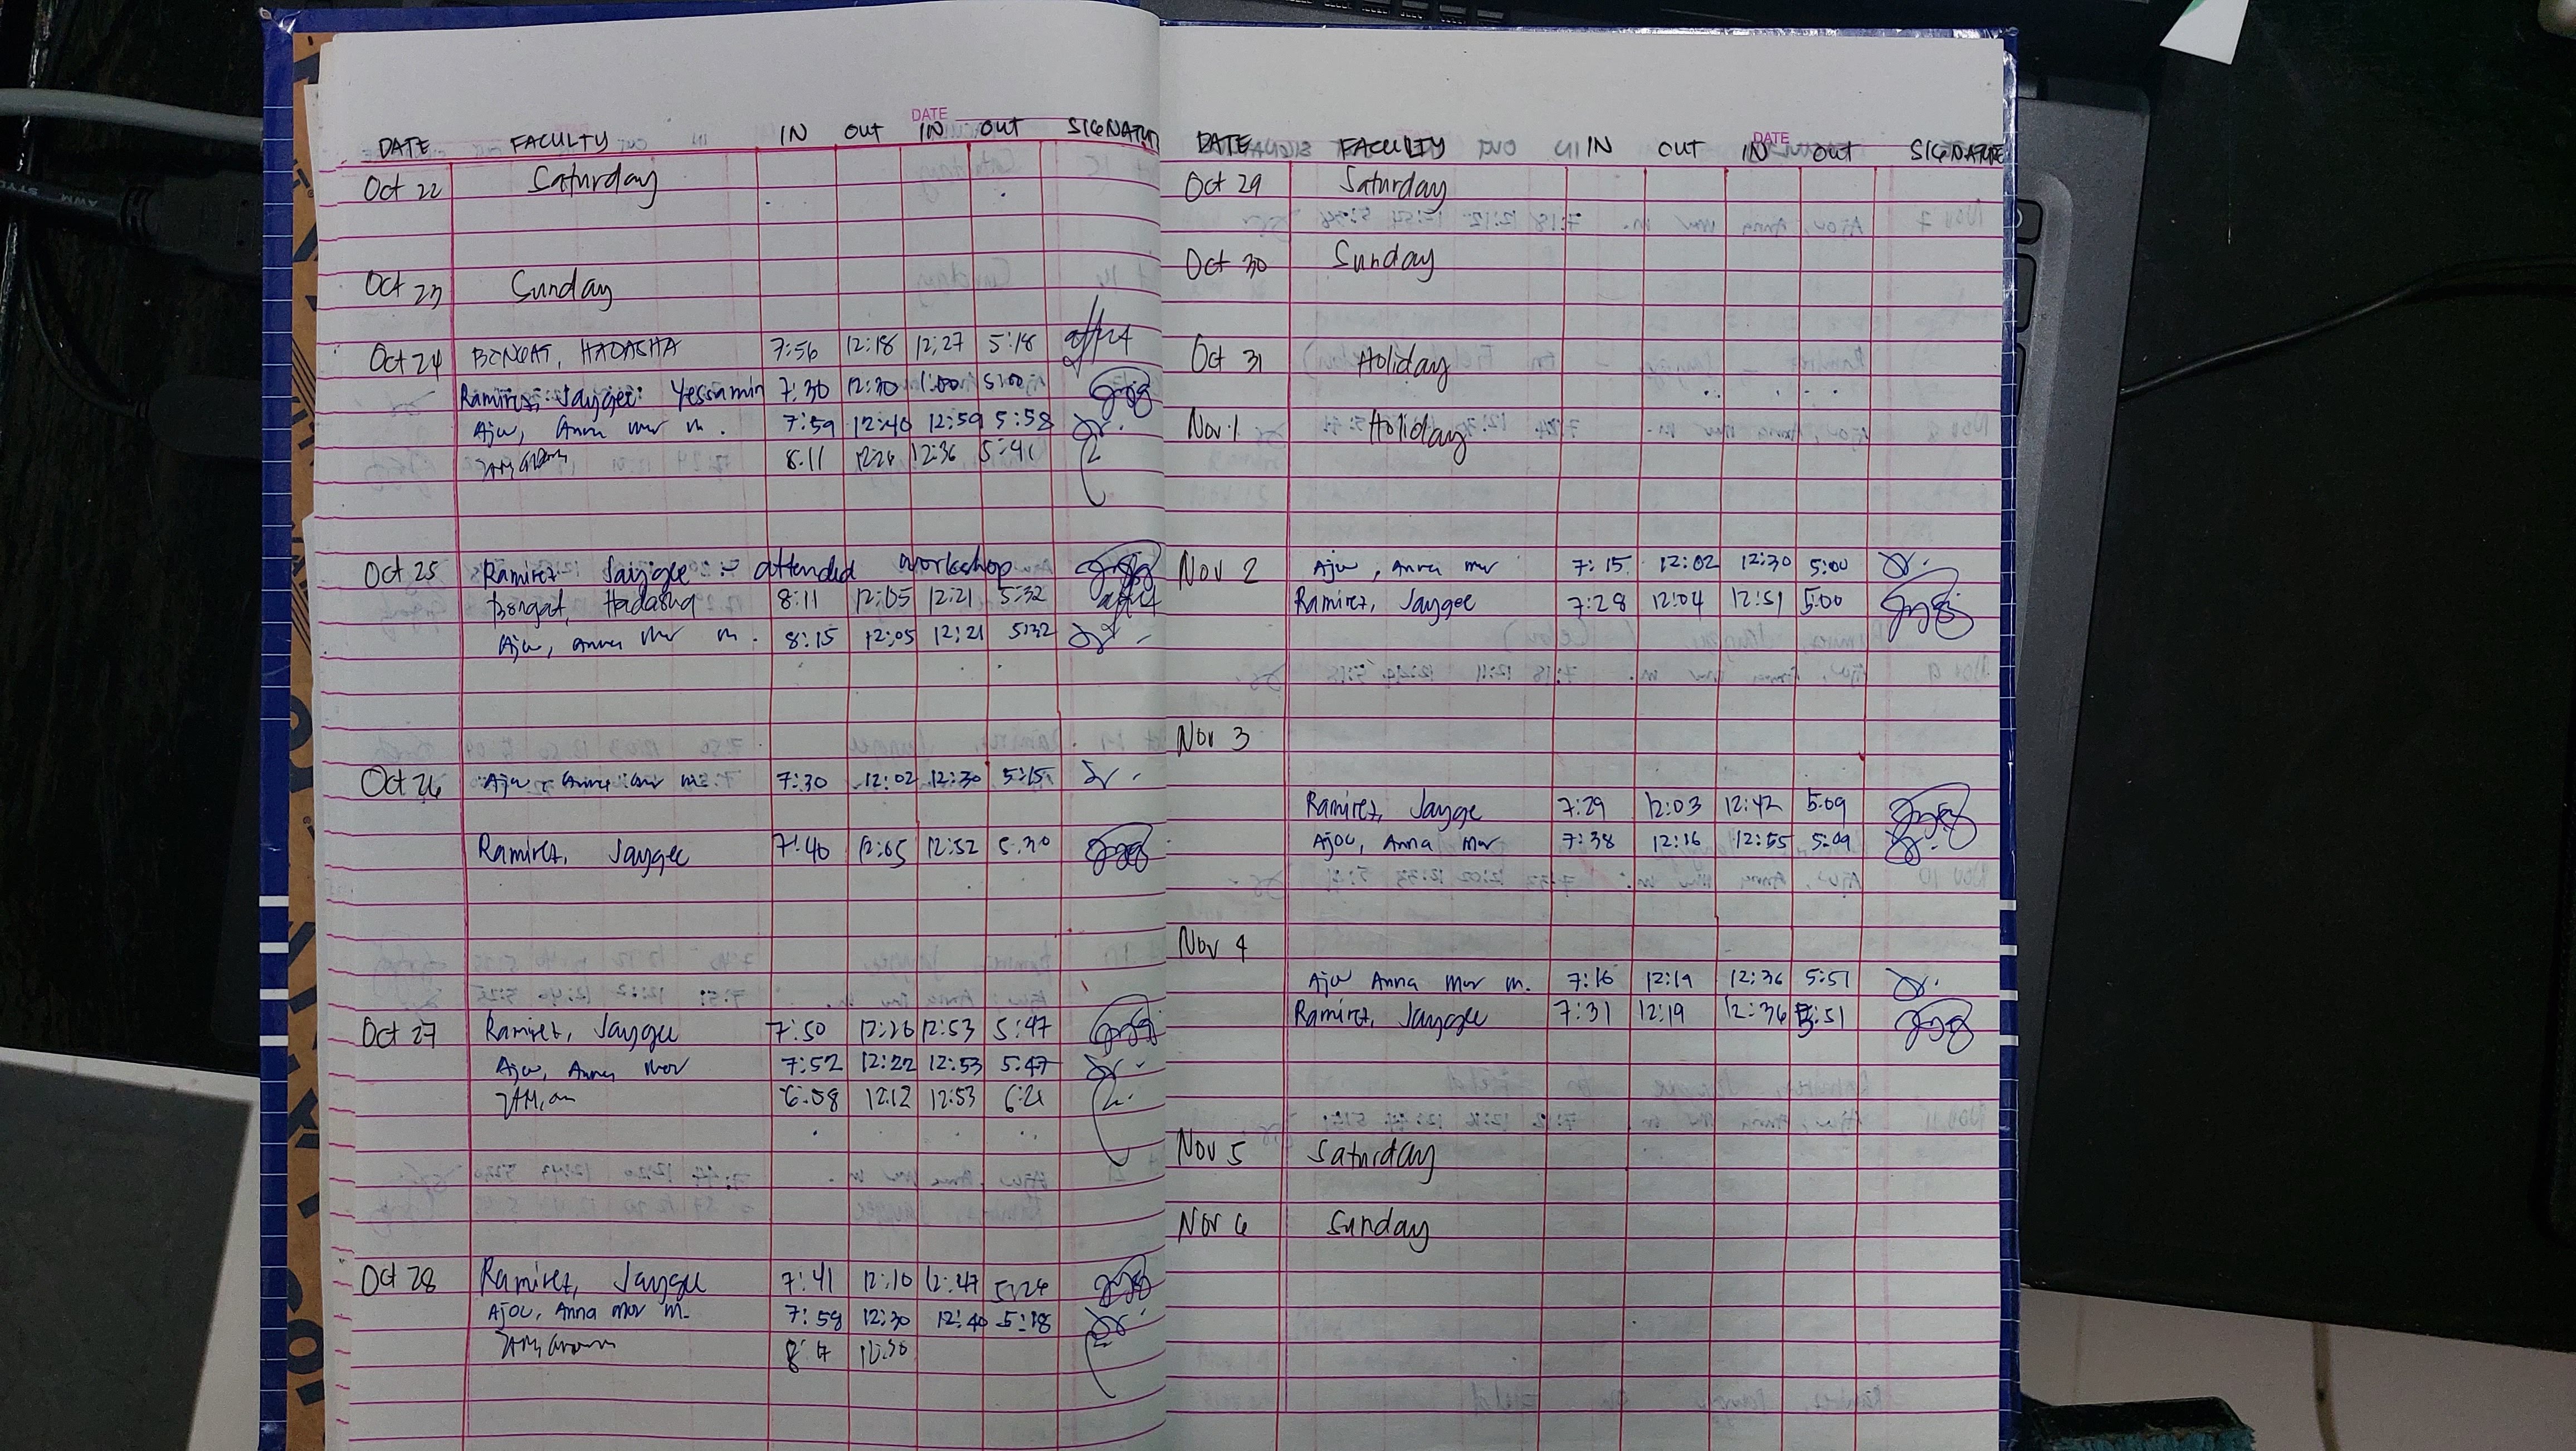 DATE
DATE FACULTY IN OUT IN OUT SIGNATURE
Oct 22 Saturday
Oct 23 Sunday
Oct 24 BENGAT, HADASHA 7:56 12:18 12:27 5:18
Ramirez, Jaygee Yessamin 7:30 12:30 1:00 5:00
Ajou, Anna Mor M. 7:59 12:40 12:59 5:58
8:11 12:26 12:36 5:41
Oct 25 Ramirez Jaygee :- attended workshop
Bengat, Hadasha 8:11 12:05 12:21 5:32
Ajou, Anna Mor M. 8:15 12:05 12:21 5:32
Oct 26 Ajou, Anna Mor M. 7:30 12:02 12:30 5:15
Ramirez, Jaygee 7:40 12:05 12:52 5:30
Oct 27 Ramirez, Jaygee 7:50 12:26 12:53 5:47
Ajou, Anna Mor 7:52 12:22 12:53 5:47
6:58 12:12 12:53 6:21
Oct 28 Ramirez, Jaygee 7:41 12:10 12:47 5:26
Ajou, Anna Mor M. 7:59 12:30 12:40 5:18
12:30
DATE
DATE FACULTY IN OUT IN OUT SIGNATURE
Oct 29 Saturday
Oct 30 Sunday
Oct 31 Holiday
Nov. 1 Holiday
Nov 2 Ajou, Anna Mor 7:15 12:02 12:30 5:00
Ramirez, Jaygee 7:28 12:04 12:51 5:00
Nov 3
Ramirez, Jaygee 7:29 12:03 12:42 5:09
Ajou, Anna Mor 7:38 12:16 12:55 5:09
Nov 4
Ajou Anna Mor M. 7:16 12:19 12:36 5:51
Ramirez, Jaygee 7:31 12:19 12:36 5:51
Nov 5 Saturday
Nov 6 Sunday